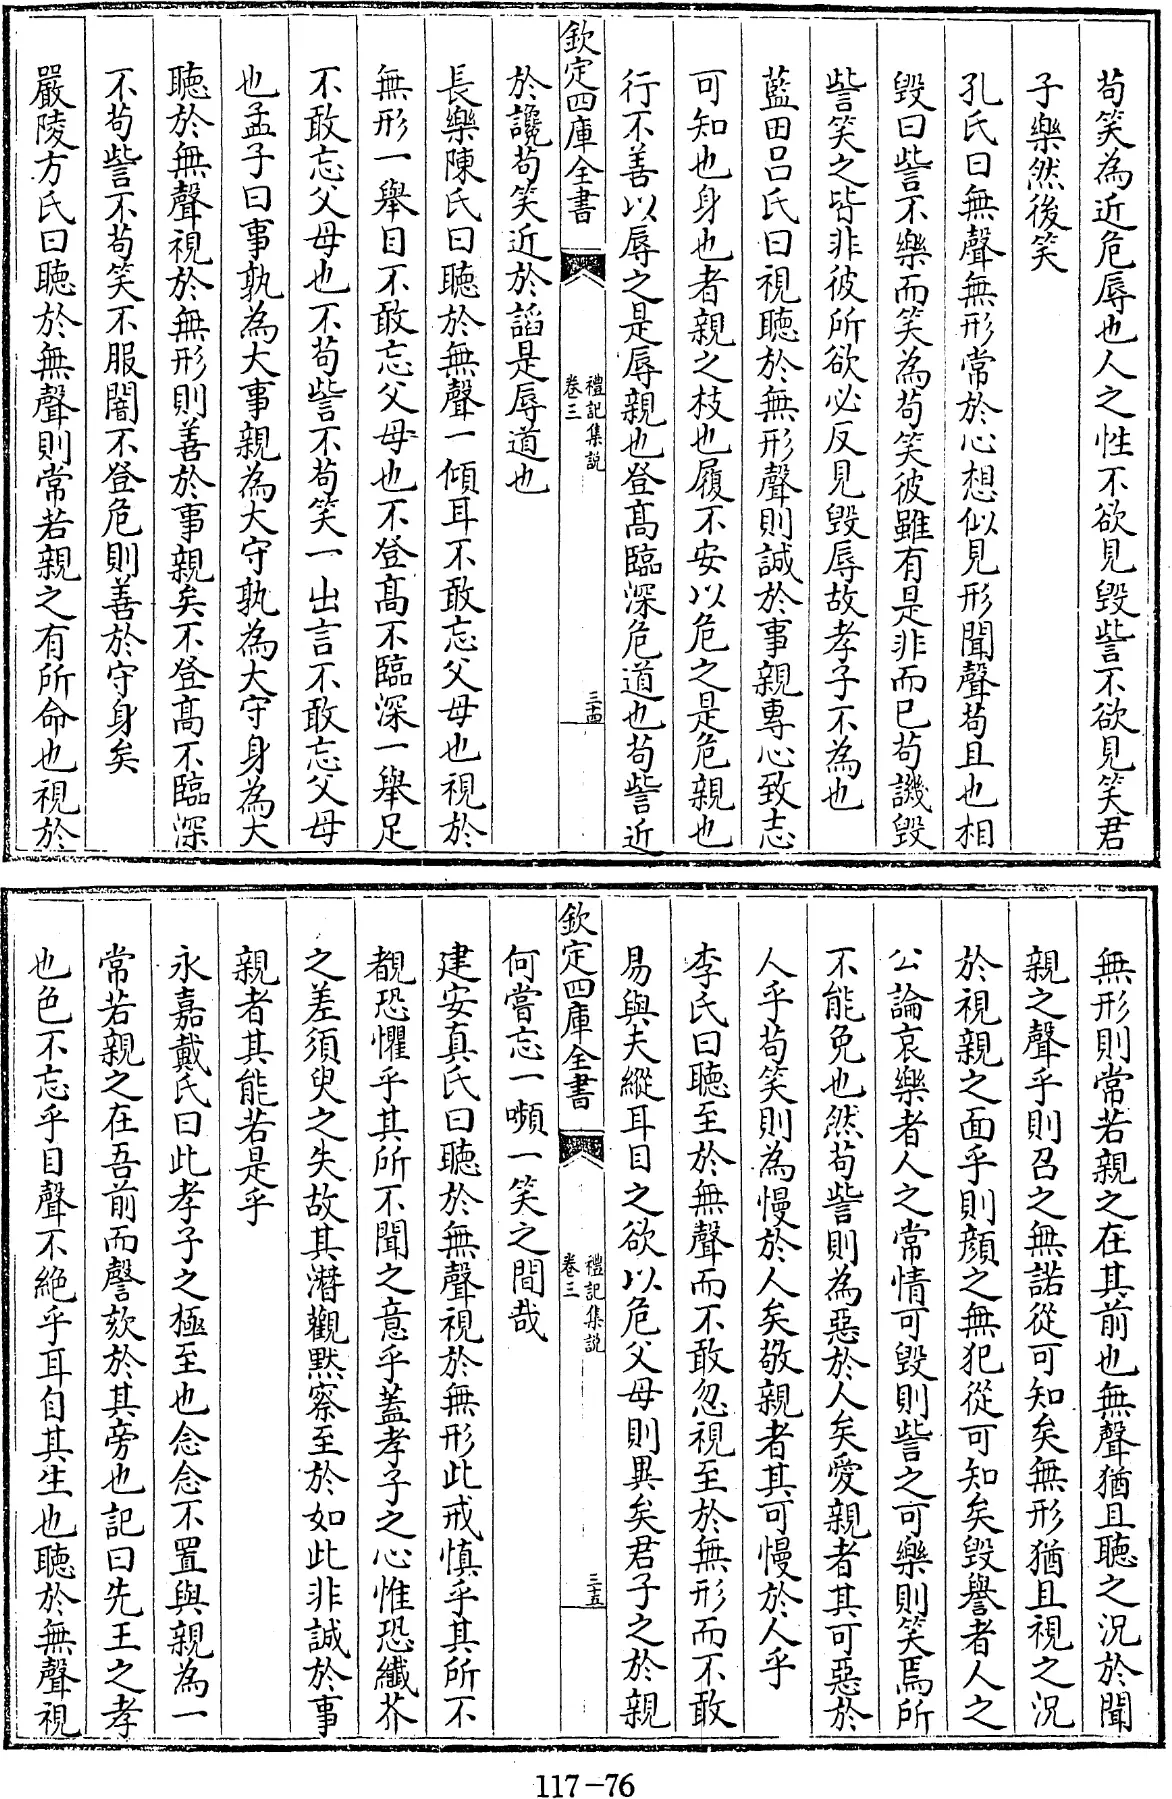 苟笑為近危辱也人之性不欲見毀訾不欲見笑君
子樂然後笑
孔氏曰無聲無形常於心想似見形聞聲苟且也相
毀曰訾不樂而笑為苟笑彼雖有是非而已苟譏毀
訾笑之皆非彼所欲必反見毀辱故孝子不為也
藍田吕氏曰視聽於無形聲則誠於事親專心致志
可知也身也者親之枝也履不安以危之是危親也
行不善以辱之是辱親也登髙臨深危道也苟訾近
欽定四庫全書
禮記集說
卷三
三十四
於讒苟笑近於諂是辱道也
長樂陳氏曰聽於無聲一傾耳不敢忘父母也視於
無形一舉目不敢忘父母也不登髙不臨深一舉足
不敢忘父母也不苟訾不苟笑一出言不敢忘父母
也孟子曰事孰為大事親為大守孰為大守身為大
聽於無聲視於無形則善於事親矣不登髙不臨深
不苟訾不苟笑不服闇不登危則善於守身矣
嚴陵方氏曰聽於無聲則常若親之有所命也視於
無形則常若親之在其前也無聲猶且聽之況於聞
親之聲乎則召之無諾從可知矣無形猶且視之況
於視親之面乎則顔之無犯從可知矣毀譽者人之
公論哀樂者人之常情可毀則訾之可樂則笑焉所
不能免也然苟訾則為惡於人矣愛親者其可惡於
人乎苟笑則為慢於人矣敬親者其可慢於人乎
李氏曰聽至於無聲而不敢忽視至於無形而不敢
易與夫縱耳目之欲以危父母則異矣君子之於親
欽定四庫全書
禮記集說
卷三
三十五
何嘗忘一嚬一笑之間哉
建安真氏曰聽於無聲視於無形此戒慎乎其所不
覩恐懼乎其所不聞之意乎蓋孝子之心惟恐纖芥
之差須臾之失故其潛觀黙察至於如此非誠於事
親者其能若是乎
永嘉戴氏曰此孝子之極至也念念不置與親為一
常若親之在吾前而謦欬於其旁也記曰先王之孝
也色不忘乎目聲不絶乎耳自其生也聽於無聲視
117-76